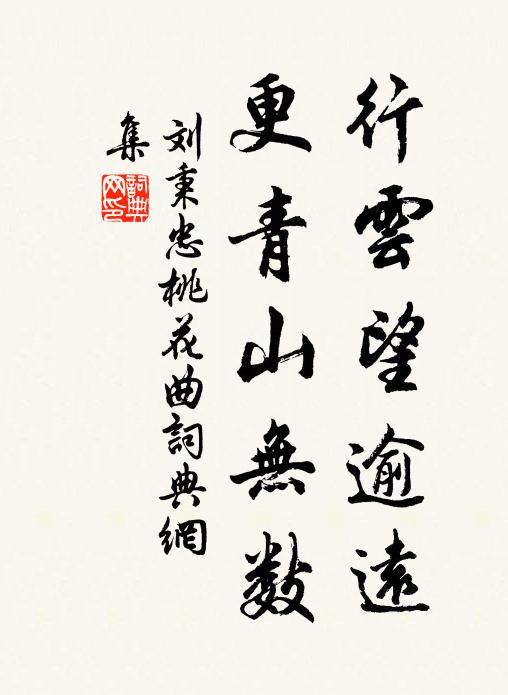 行雲望逾遠
更青山無數
刘秉忠桃花曲詞典網
集
詞典
网印